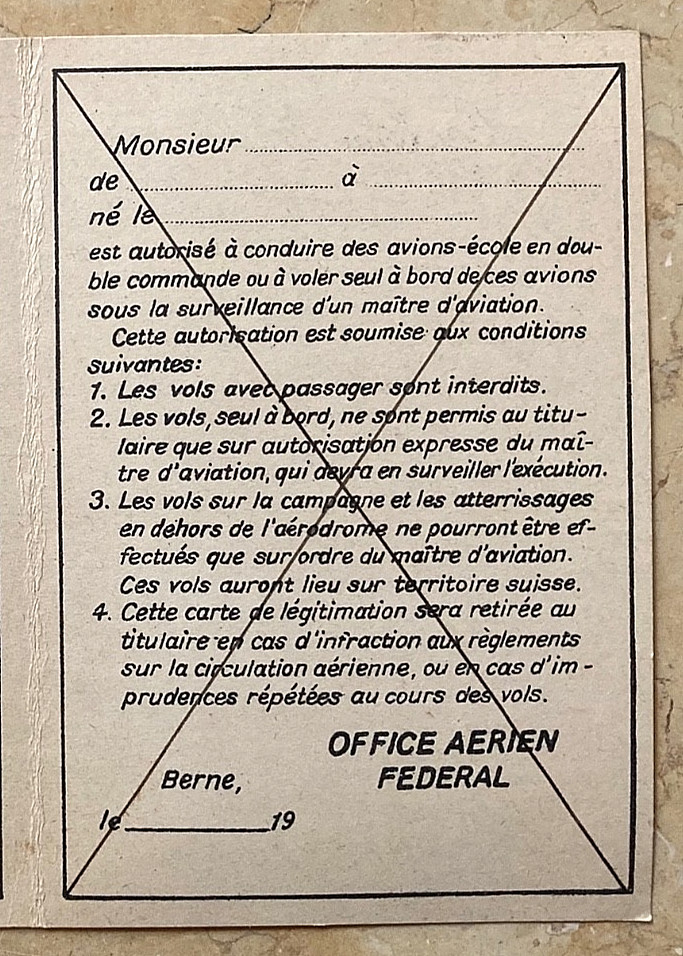 Monsieur
de à
né le
est autorisé à conduire des avions-école en dou-
ble commande ou à voler seul à bord de ces avions
sous la surveillance d'un maître d'aviation.
Cette autorisation est soumise aux conditions
suivantes:
1. Les vols avec passager sont interdits.
2. Les vols, seul à bord, ne sont permis au titu-
laire que sur autorisation expresse du maî-
tre d'aviation, qui devra en surveiller l'exécution.
3. Les vols sur la campagne et les atterrissages
en dehors de l'aérodrome ne pourront être ef-
fectués que sur ordre du maître d'aviation.
Ces vols auront lieu sur territoire suisse.
4. Cette carte de légitimation sera retirée au
titulaire en cas d'infraction aux règlements
sur la circulation aérienne, ou en cas d'im-
prudences répétées au cours des vols.
OFFICE AERIEN
FEDERAL
Berne,
le 19